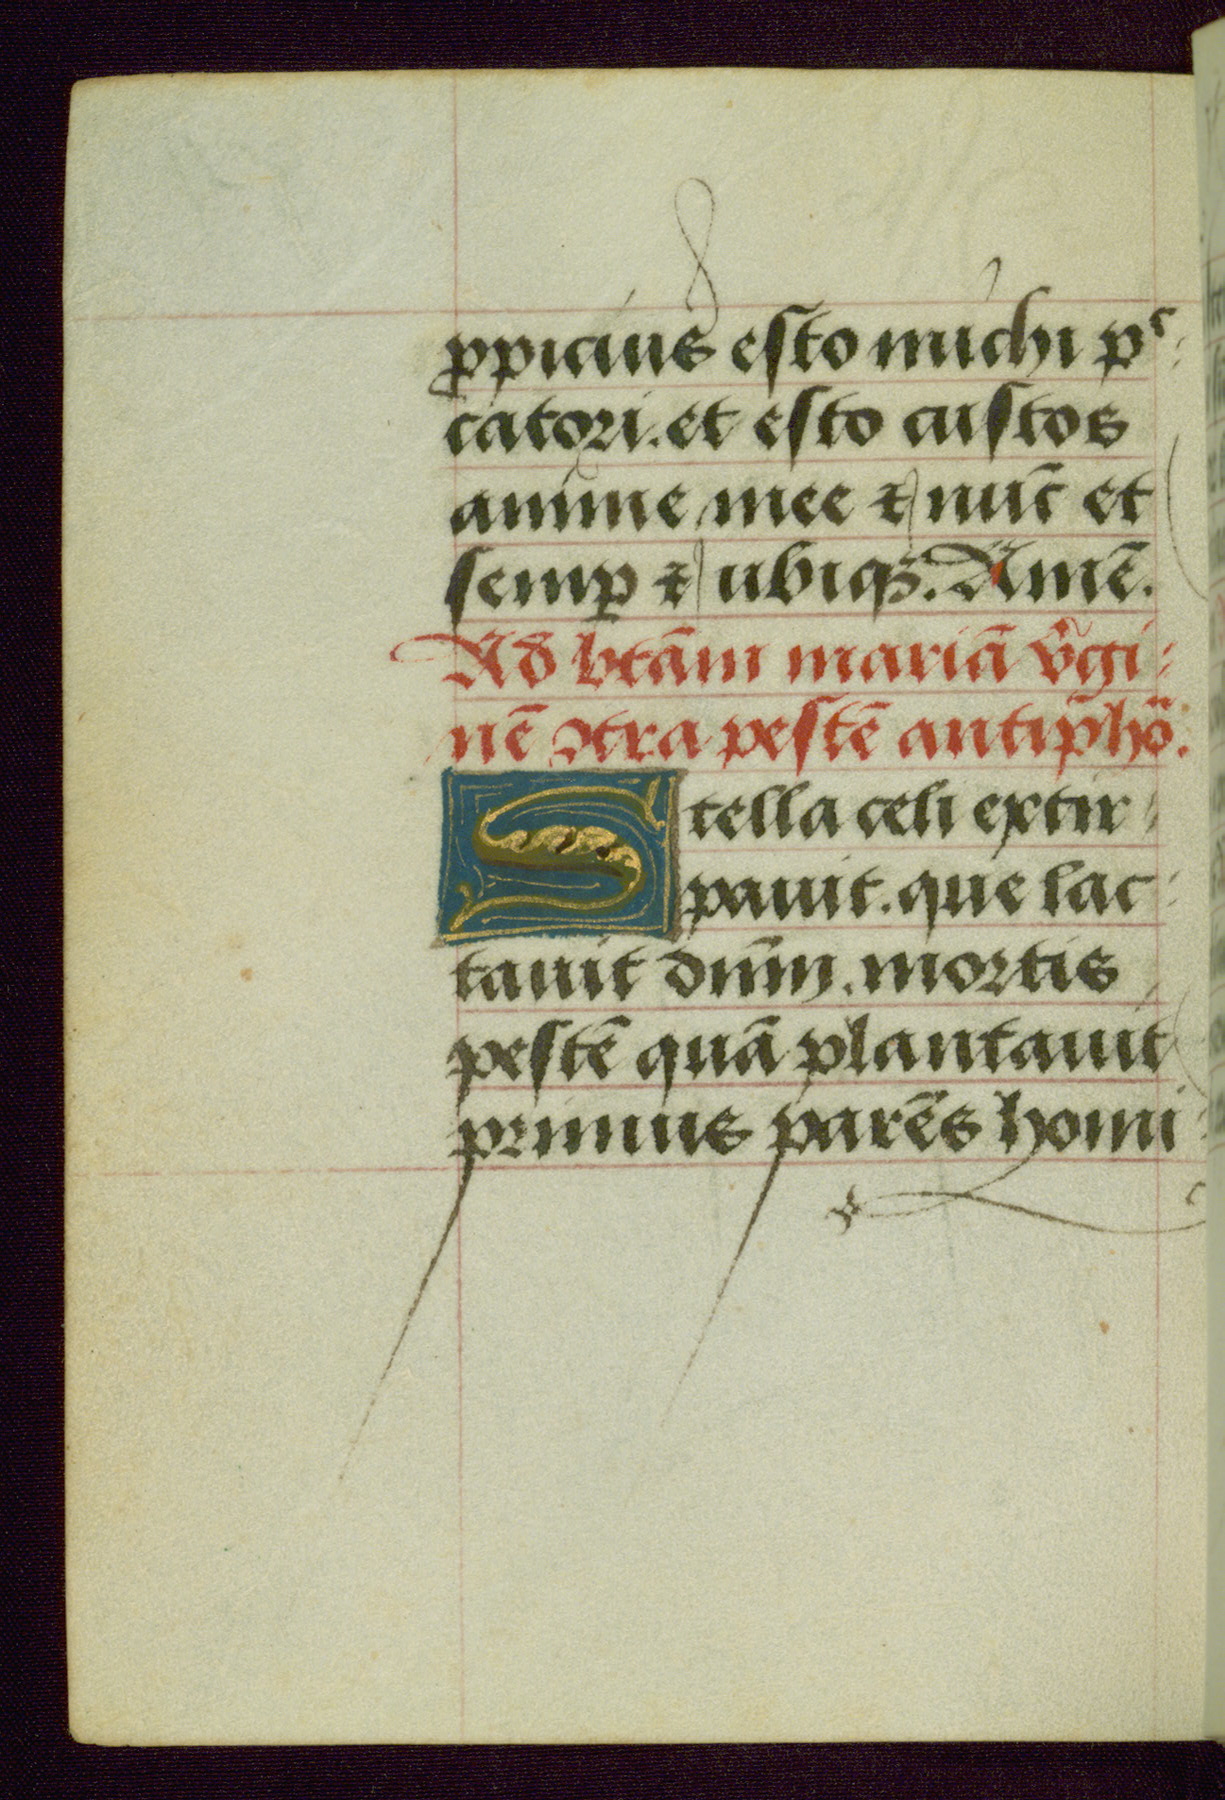 ꝓpicius esto michi pᶜ:
catori. et esto custos
anime mee ⁊ nūc et
semꝑ ⁊ ubiqꝫ. Amē.
Ad btām mariā v̄gi:
nē ꝯtra pestē antiphō.
Stella celi extir:
pauit. que lac:
tauit dn̄m. mortis
pestē quā plantauit
primus parēs homi